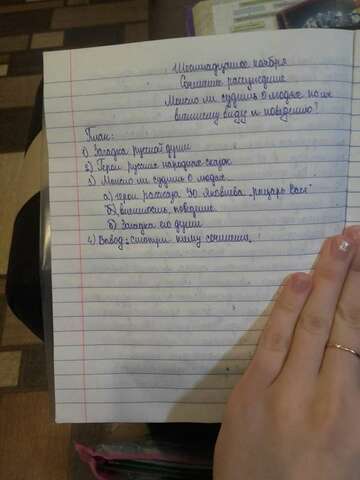 Шестнадцатое ноября
Сочинение рассуждение
Можно ли судить о людях по их
внешнему виду и поведению?
План:
1) Загадка русской души
2) Герои русских народных сказок
3) Можно ли судить о людях
а) герои рассказа Ю Яковлева „рыцарь Вася"
б) внешность, поведение.
в) Загадка его души
4) Вывод: смотри тему сочинения.